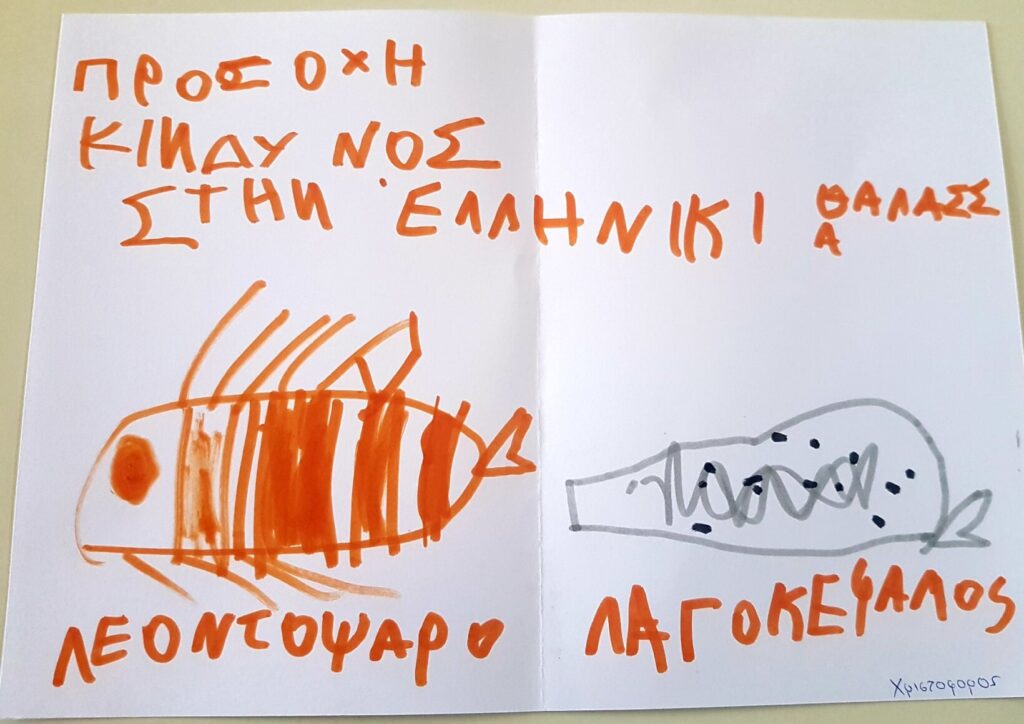 ΠΡΟΣΟΧΗ
ΚΙΝΔΥΝΟΣ
ΣΤΗΝ ΕΛΛΗΝΙΚΙ ΘΑΛΑΣΣΑ
ΛΕΟΝΤΟΨΑΡΟ
ΛΑΓΟΚΕΨΑΛΟς
Χριστοφορος